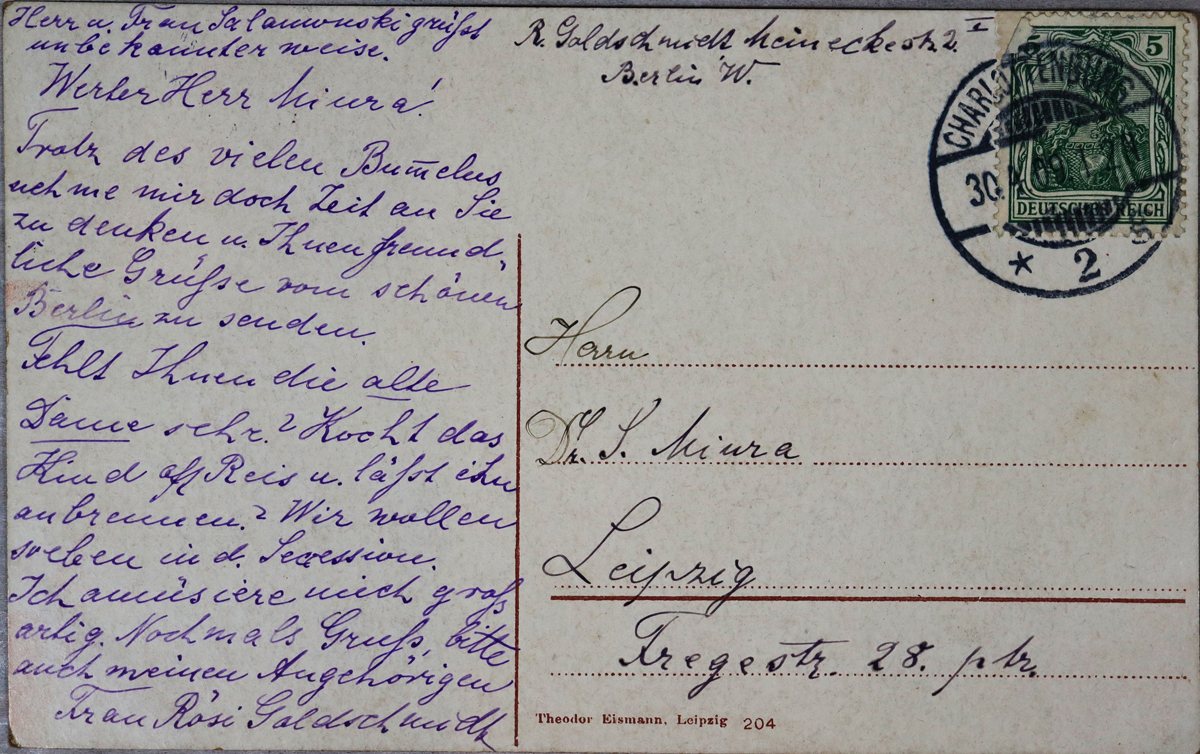 Herr u. Frau Salamonski grüßt
unbekannter weise.
Werter Herr Miura!
Trotz des vielen Bum̅elns
nehme mir doch Zeit an Sie
zu denken u. Ihnen freund-
liche Grüße vom schönen
Berlin zu senden.
Fehlt Ihnen die alte
Dame sehr? Kocht das
Kind oft Reis u. läßt ihn
anbrennen? Wir wollen
soeben in d. Secession.
Ich amüsiere mich groß
artig. Nochmals Gruß, bitte
auch meinen Angehörigen
Frau Rösi Goldschmidt
R. Goldschmidt Meineckestr. 2. I
Berlin W.
5
DEUTSCHES REICH
CHARLOTTENBURG
30.4.09
* 2
Herrn
Dr. S. Miura
Leipzig
Fregestr. 28. ptr.
Theodor Eismann, Leipzig 204